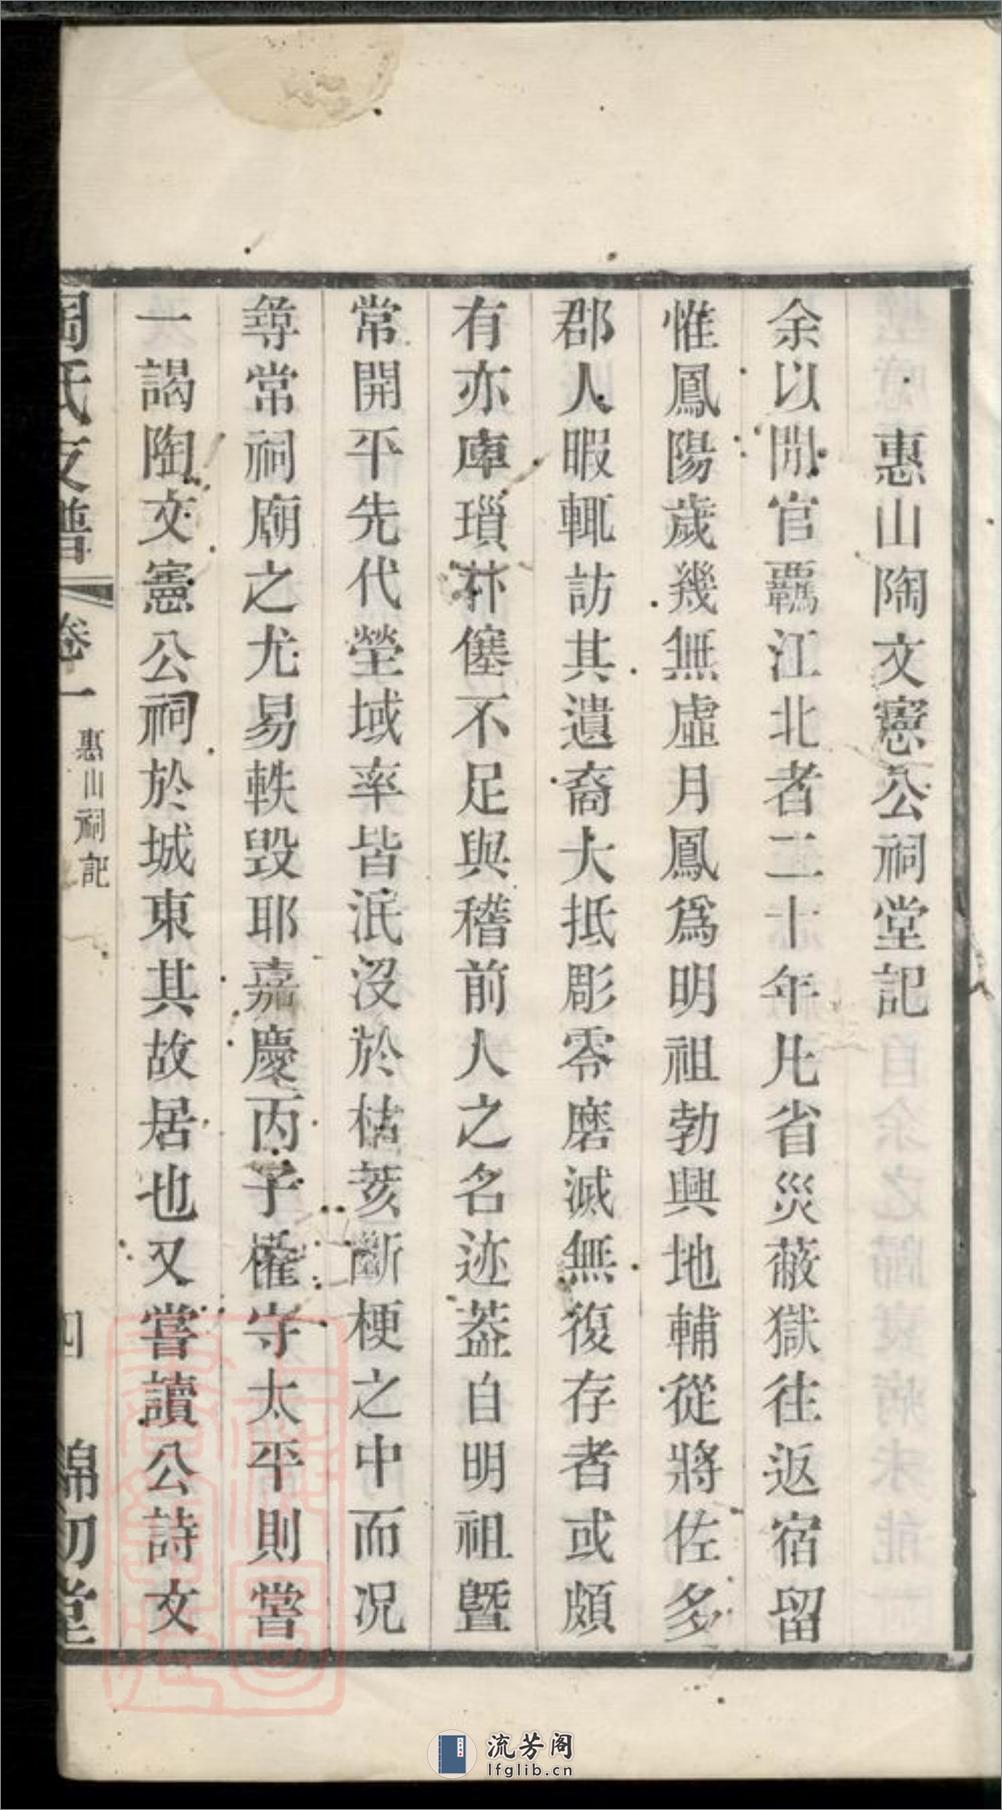 惠山陶文憲公祠堂記
余以閒官覊江北者二十年凡省災蔽獄往返宿留
惟鳳陽歲幾無虛月鳳爲明祖勃興地輔從將佐多
郡人暇輒訪其遺裔大抵彫零磨滅無復存者或頗
有亦庳瑣朴僿不足與稽前人之名迹葢自明祖曁
常開平先代塋域率皆泯沒於枯荄斷梗之中而况
尋常祠廟之尤易軼毀耶嘉慶丙子權守太平則嘗
一謁陶文憲公祠於城東其故居也又嘗讀公詩文
周氏支譜 卷一 惠山祠記 四 錦初堂
流芳阁
lfglib.cn